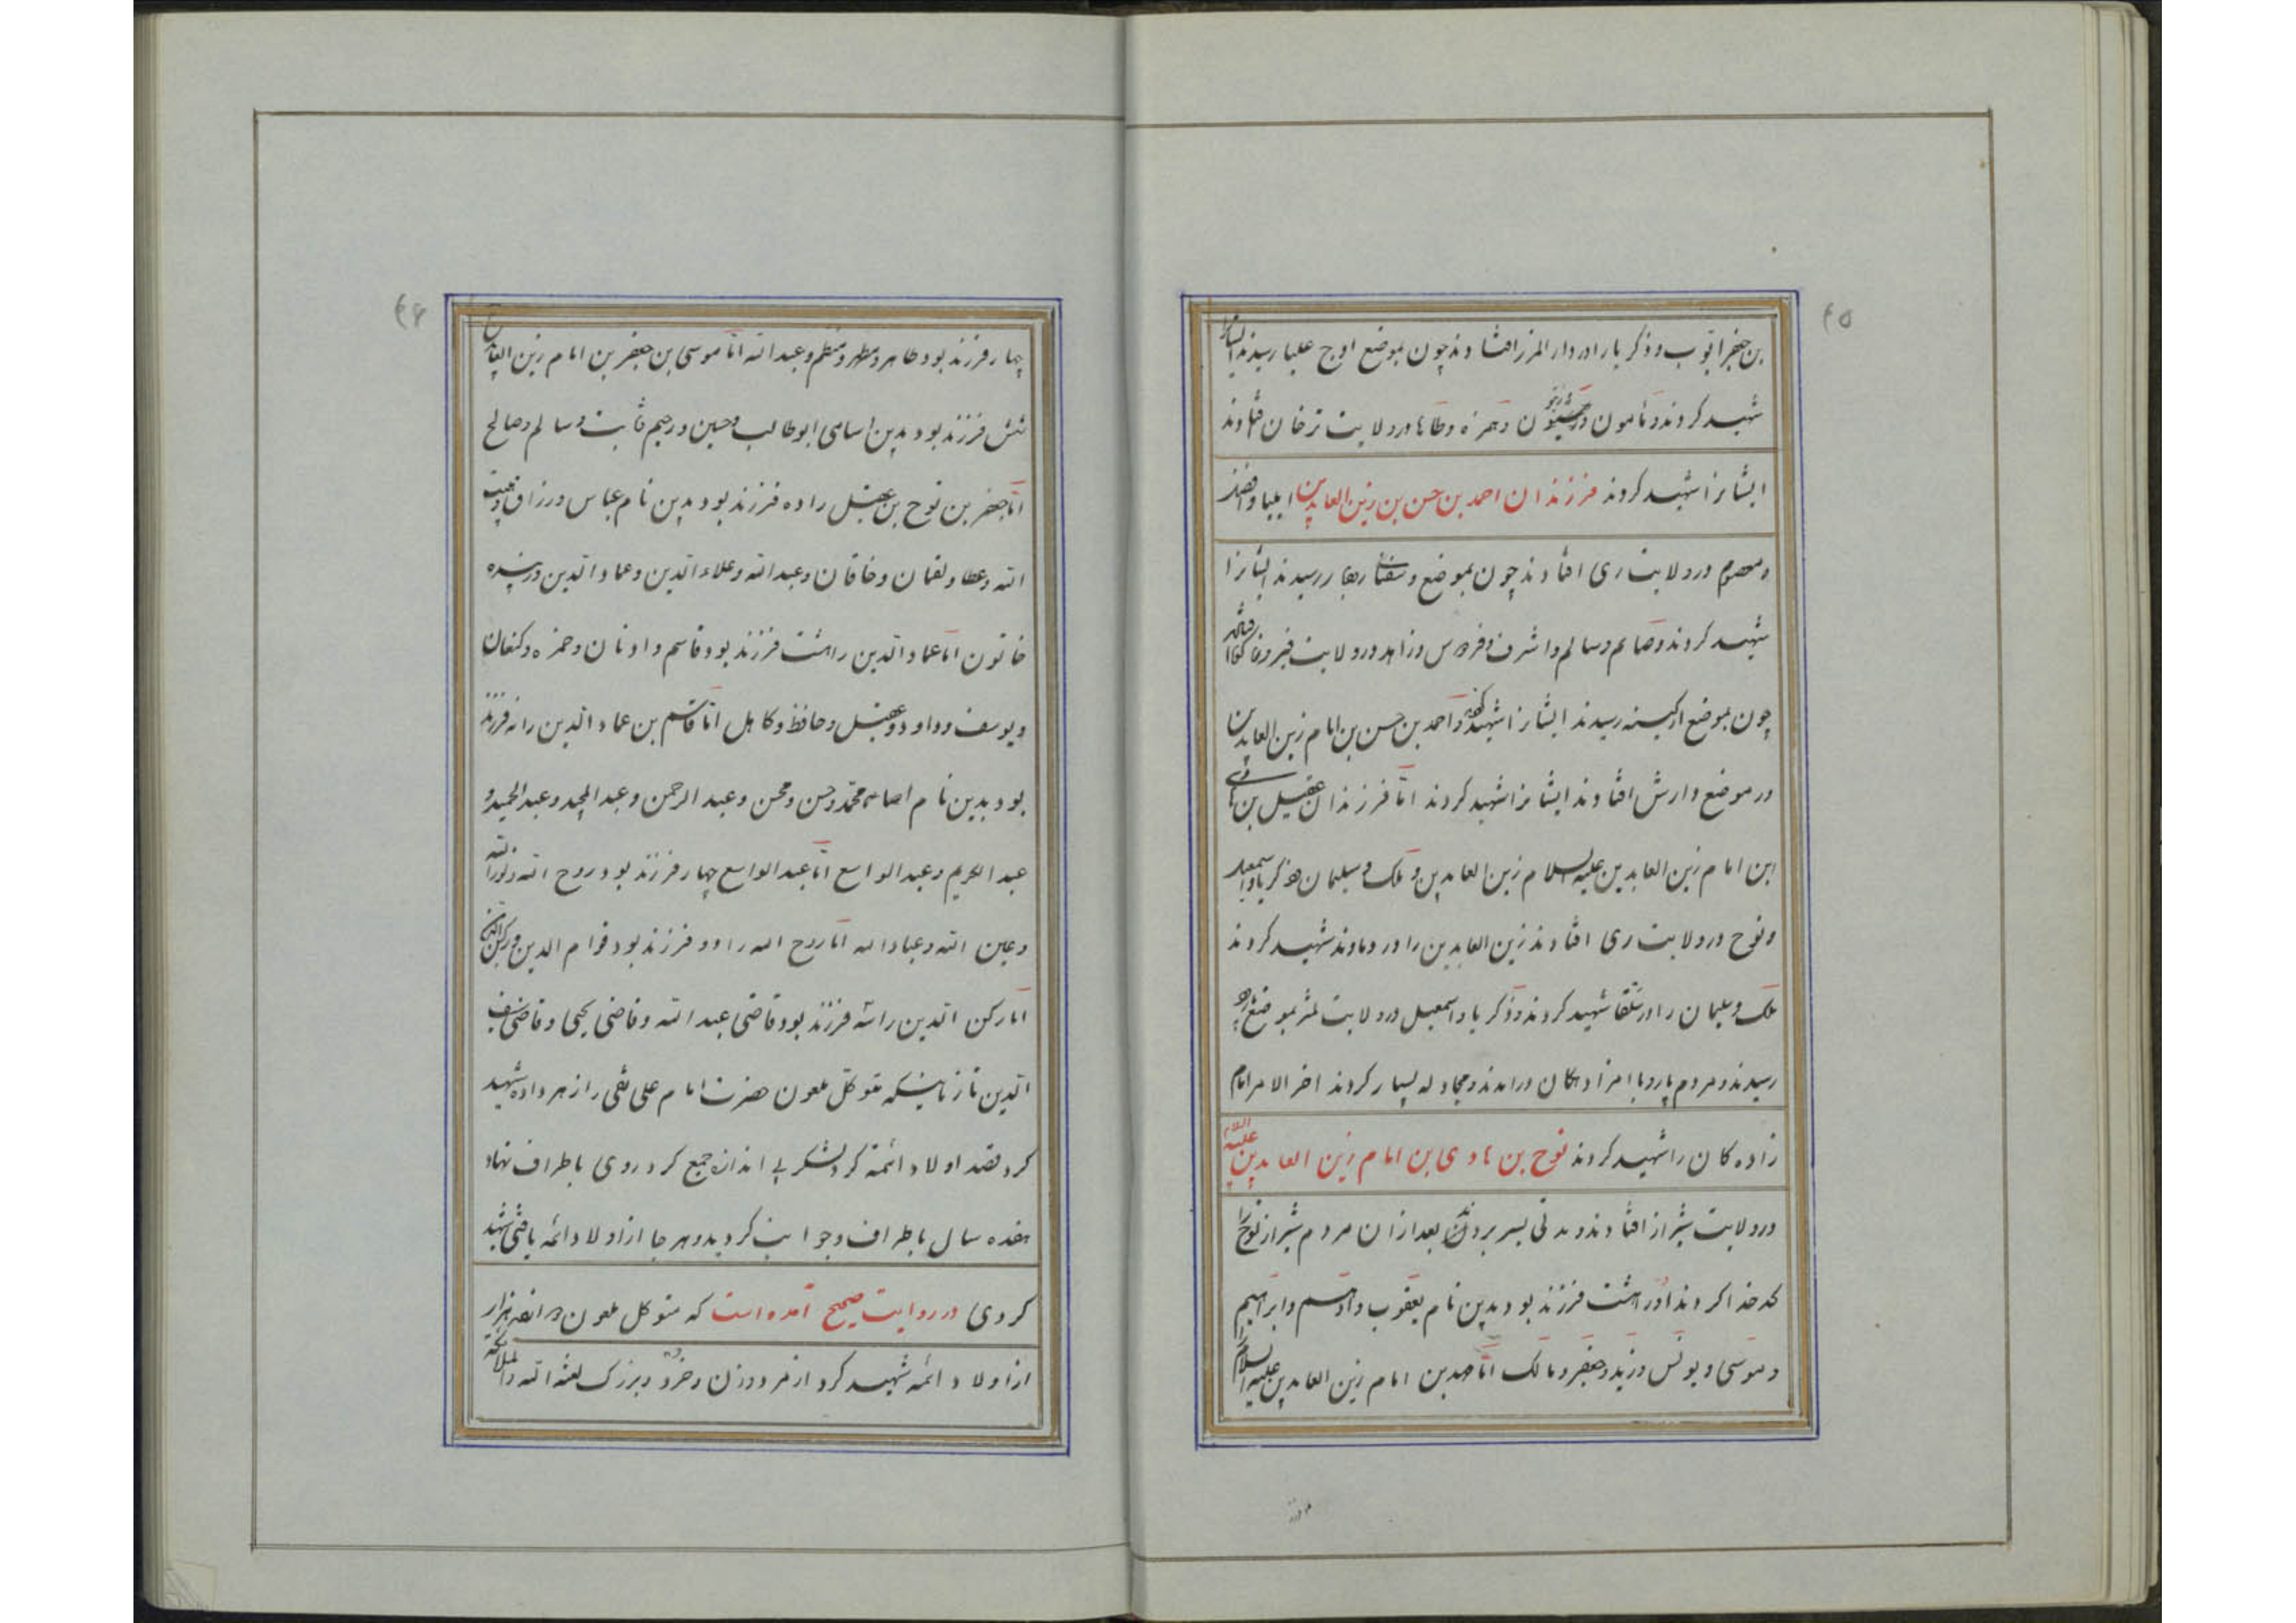 ۴۵
بن جعفر ایوب و ذکریا را در دار المرز افتادند چون بموضع اوج علیا رسیدند ایشانرا
شهید کردند و مامون و حمزه و طاها در ولایت ترخان افتادند
ایشانرا شهید کردند فرزندان احمد بن حسن بن زین العابدین ایلیا و فضل
و معصوم در ولایت ری افتادند چون بموضع رسیدند ایشانرا
شهید کردند و صایم و سالم و اشرف و فردوس و زاهد در ولایت فیروزکوه
چون بموضع ارکینه رسیدند ایشانرا شهید و احمد بن حسن بن امام زین العابدین
در موضع وارش افتادند ایشانرا شهید کردند اما فرزندان عقیل بن هادی
ابن امام زین العابدین علیه السلام زین العابدین و ملک و سلیمان و ذکریا و اسمعیل
و نوح در ولایت ری افتادند زین العابدین را در دماوند شهید کردند
ملک و سلیمان را در شهید کردند و ذکریا و اسمعیل در ولایت بموضع
رسیدند و مردم پارو با امزادهکان درامدند و مجادله بسیار کردند اخر الامر امام
زاده کان را شهید کردند نوح بن هادی بن امام زین العابدین علیه السلام
در ولایت شیراز افتادند و مدتی بسر بردند بعد ازان مردم شیراز نوح را
کدخدا کردند او را هشت فرزند بود بدین نام یعقوب و ادهم و ابراهیم
و موسی و یونس و زید و جعفر و مالک اما بن امام زین العابدین علیه السلام
۴۶
چهار فرزند بود طاهر و مطهر و مظم و عبد الله اما موسی بن جعفر بن امام زین العابدین
شش فرزند بود بدین اسامی ابو طالب و حسین و رحیم ثابت و سالم و صالح
اما جعفر بن نوح بن عقیل را ده فرزند بود بدین نام عباس و رزاق و
الله و عطا و لقمان و خاقان و عبد الله و علاء الدین و عماد الدین و رشیده
خاتون اما عماد الدین را هشت فرزند بود قاسم و ادنان و حمزه و کنعان
و یوسف و داود و عقیل و حافظ و کاهل اما قاسم بن عماد الدین را نه فرزند
بود بدین نام محمد و حسن و محسن و عبد الرحمن و عبد المجید و عبد الحمید و
عبد الکریم و عبد الواسع اما عبد الواسع چهار فرزند بود روح الله و نور الله
و عین الله و عباد الله اما روح الله را دو فرزند بود قوام الدین و رکن الدین
اما رکن الدین را سه فرزند بود قاضی عبد الله و قاضی یحیی و قاضی
الدین تا زمانیکه متوکل ملعون حضرت امام علی نقی را زهر داده شهید
کرد قصد اولاد ائمه کرد لشکر بی اندازه جمع کرد روی باطراف نهاد
هفده سال باطراف و جوانب کردید و هر جا از اولاد ائمه یافتی شهید
کردی در روایت صحیح آمده است که متوکل ملعون هزار
از اولاد ائمه شهید کرد از مرد و زن و خرد و بزرک لعنه الله و الملائکة